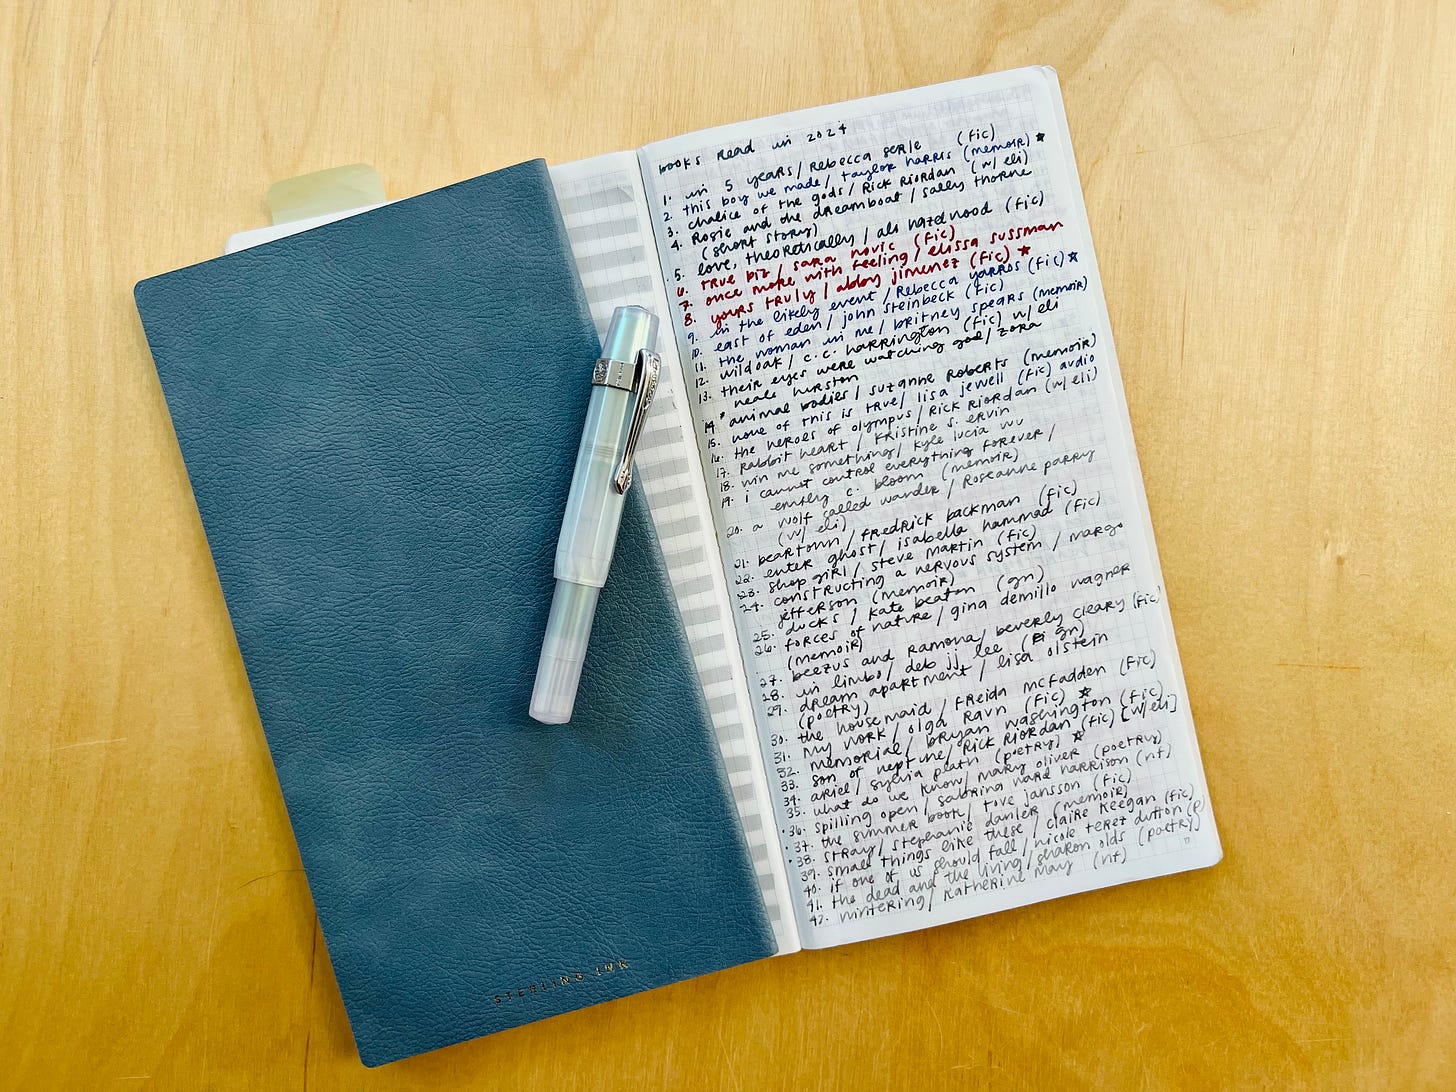 STERLING INK
books read in 2024
1. in 5 years / Rebecca Serle (fic)
2. this boy we made / taylor harris (memoir) ★
3. chalice of the gods / Rick Riordan (w/ eli)
4. Rosie and the dreamboat / sally thorne
(short story)
5. love, theoretically / ali hazelwood (fic)
6. true biz / sara novic (fic)
7. once more with feeling / elissa sussman
8. yours truly / abby jimenez (fic) ★
9. in the likely event / Rebecca yarros (fic) ★
10. east of eden / john steinbeck (fic)
11. the woman in me / britney spears (memoir)
12. wildoak / c.c. harrington (fic) w/ eli
13. their eyes were watching god / zora
neale hurston
14 * animal bodies / suzanne roberts (memoir)
15. none of this is true / lisa jewell (fic) audio
16. the heroes of olympus / Rick Riordan (w/ eli)
17. rabbit heart / kristine s. ervin
18. win me something / kyle lucia wu
19. i cannot control everything forever /
emily c. bloom (memoir)
20. a wolf called wander / Roseanne parry
(w/ eli)
21. beartown / fredrick backman (fic)
22. enter ghost / isabella hammad (fic)
23. shop girl / steve martin (fic)
24. constructing a nervous system / margo
jefferson (memoir)
25. ducks / kate beaton (gn)
26. forces of nature / gina demillo wagner
(memoir)
27. beezus and Ramona / beverly cleary (fic)
28. in limbo / deb jj lee (gn)
29. dream apartment / lisa olstein
(poetry)
30. the housemaid / freida mcfadden (fic)
31. my work / olga Ravn (fic) ★
32. memorial / bryan washington (fic)
33. son of neptune / Rick Riordan (fic) [w/eli]
34. ariel / sylvia plath (poetry) ★
35. what do we know / mary oliver (poetry)
36. spilling open / sabrina ward harrison (nf)
37. the summer book / tove jansson (fic)
38. stray / stephanie danler (memoir)
39. small things like these / claire keegan (fic)
40. if one of us should fall / nicole terez dutton (p)
41. the dead and the living / sharon olds (poetry)
42. wintering / katherine may (nf)